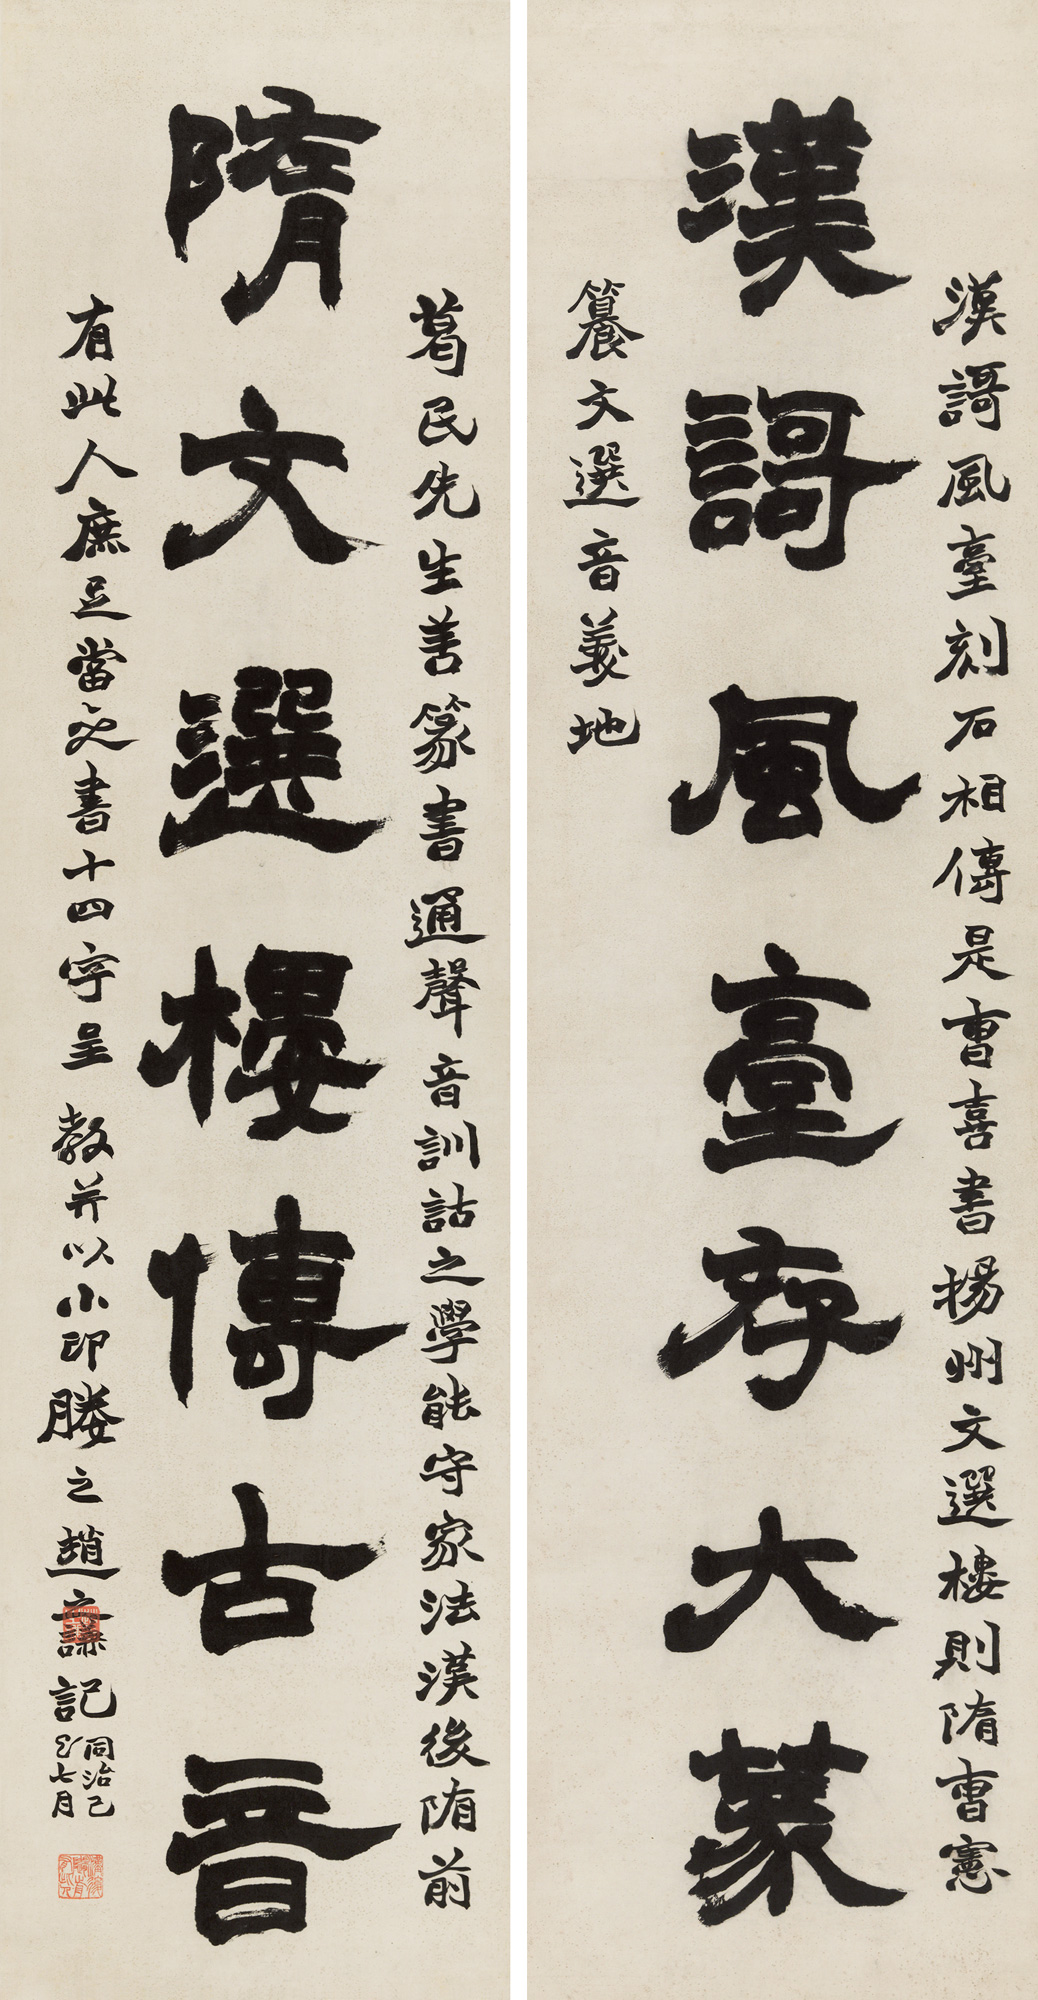 漢謌風臺存大篆
漢謌風臺刻石相傳是曺喜書揚州文選樓則隋曺憲
籑文選音義地
隋文選樓傳古音
葛民先生善篆書通聲音訓詁之學能守家法漢後隋前
有此人庶足當之書十四字呈
教并以小印媵之趙之謙記
同治己
巳七月